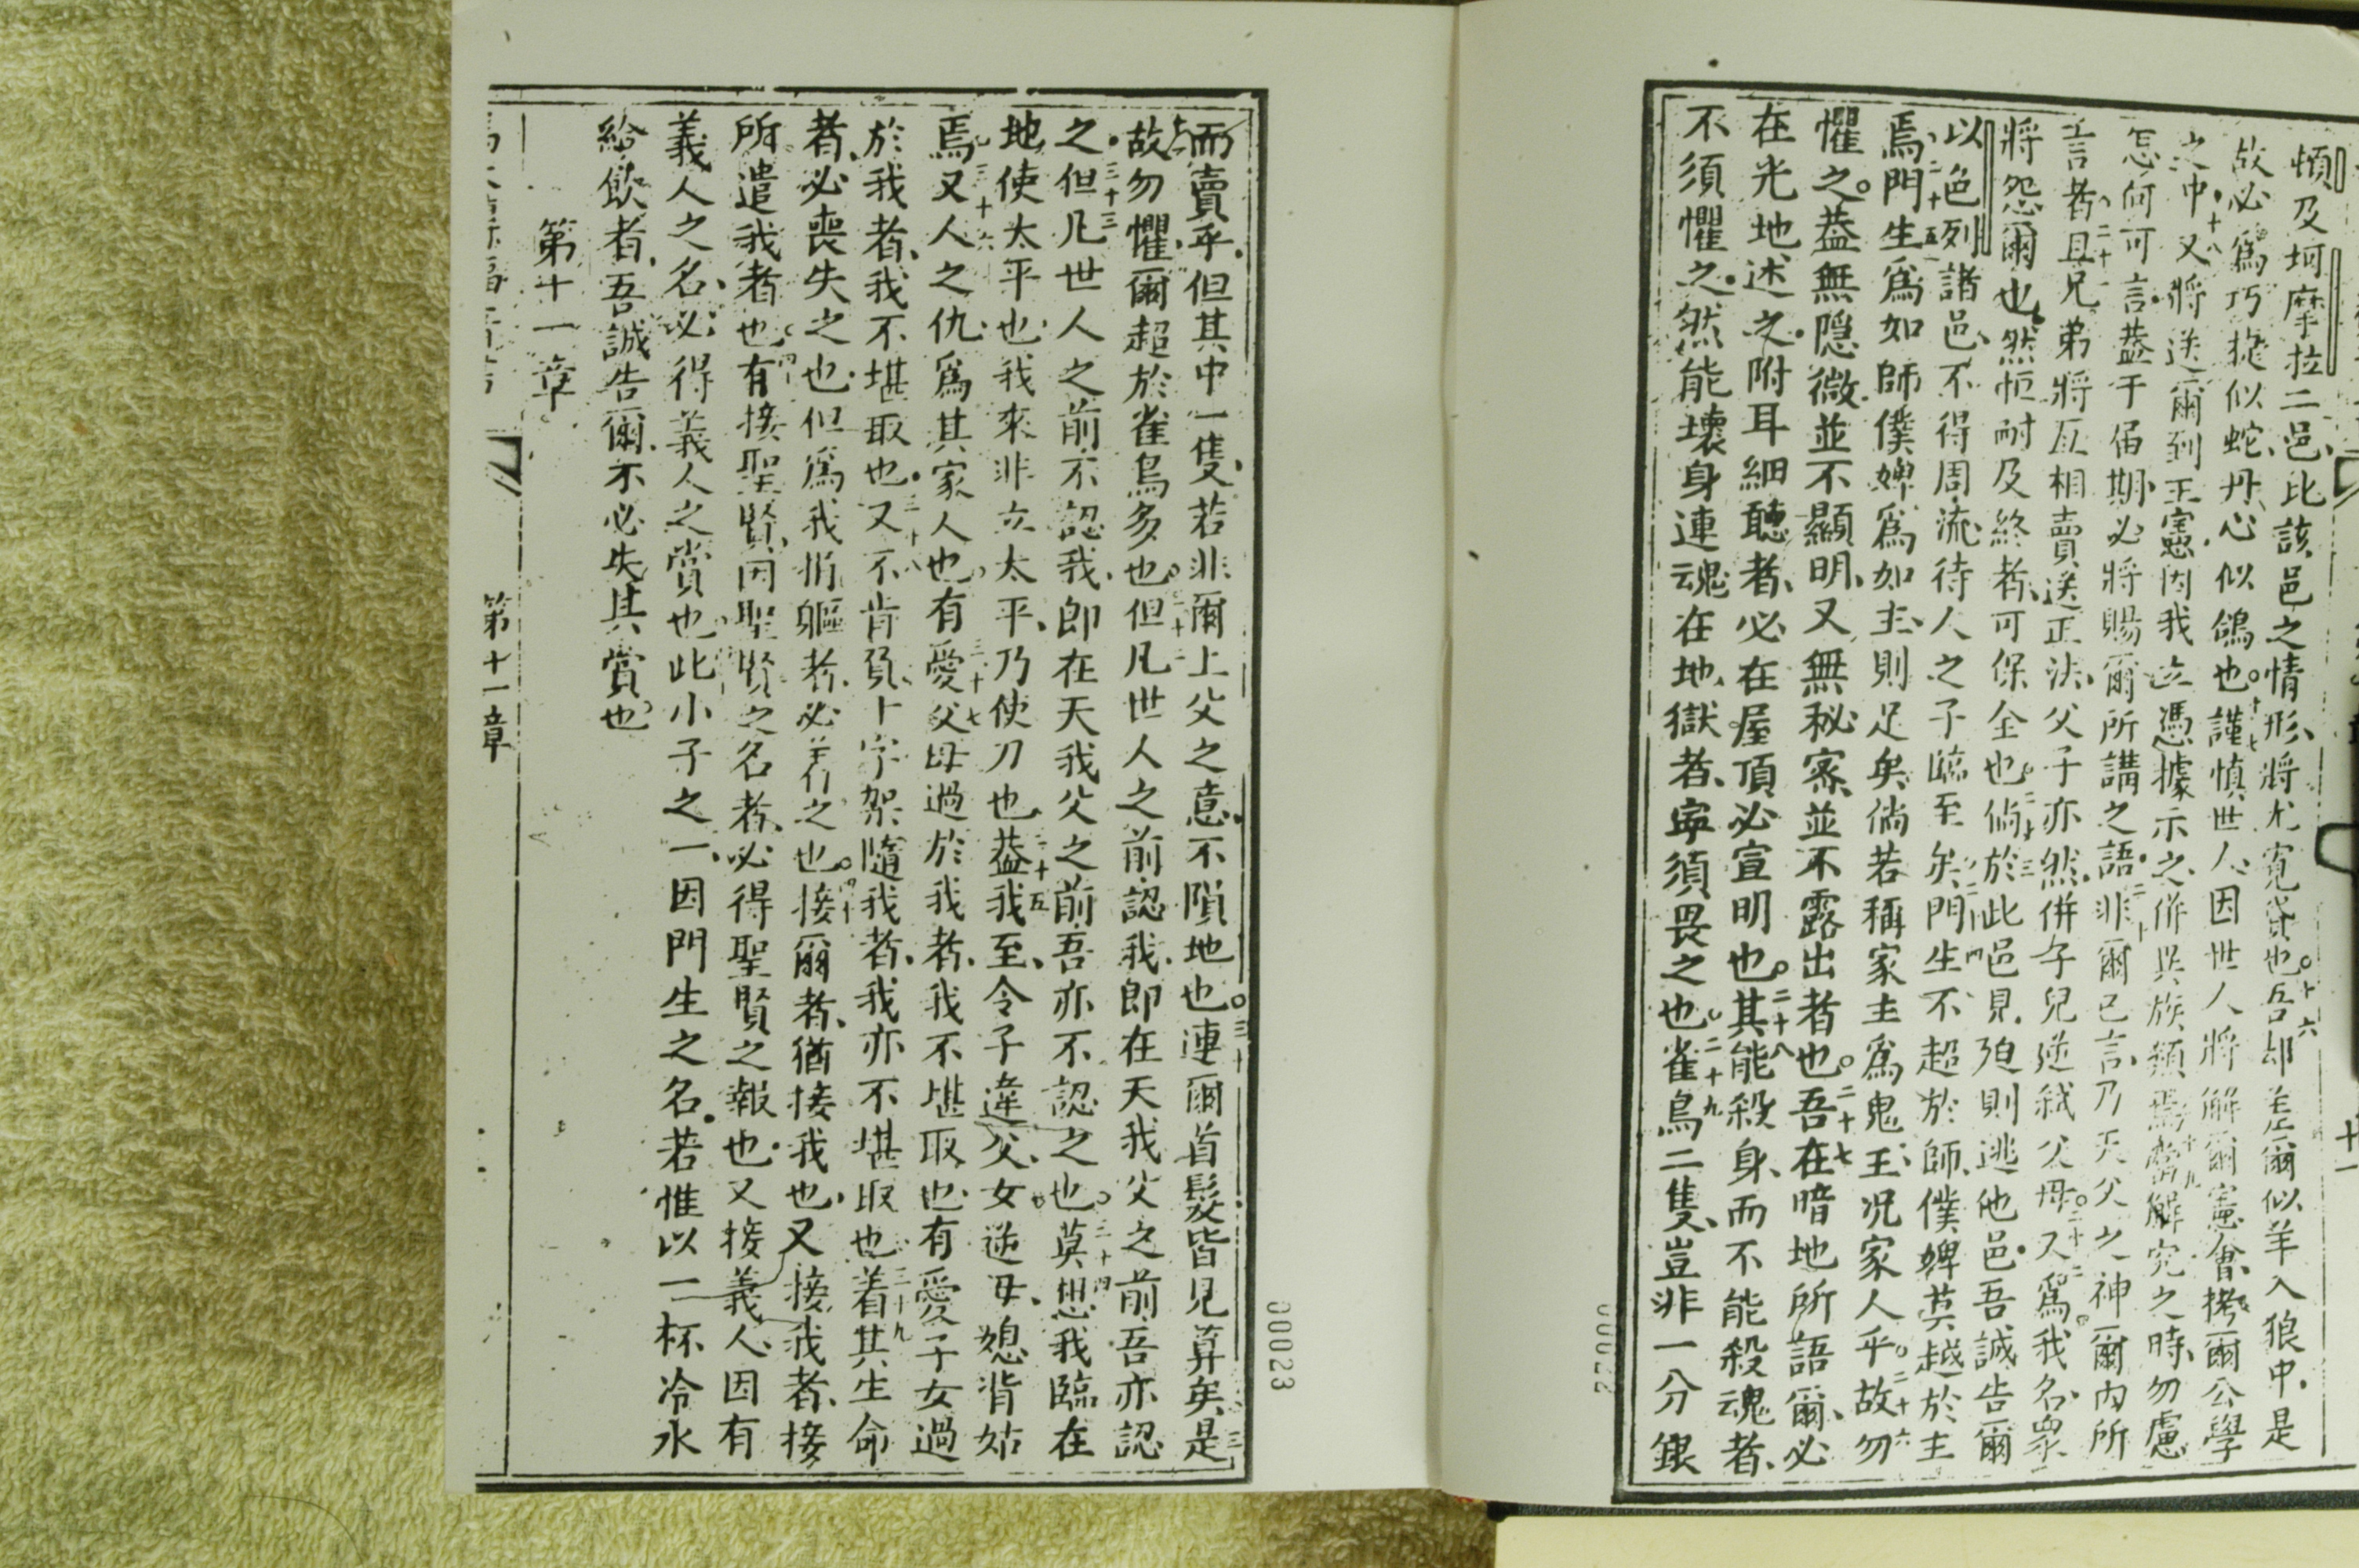 煩及坷摩拉二邑比該邑之情形將尤寬貸也○十六吾却差爾似羊入狼中是
故必為巧捷似蛇丹心似鴿也○十七謹慎世人因世人將解爾憲會拷爾公學
之中○十八又將送爾到王憲因我立憑據示之併異族類焉○十九當解究之時勿慮
怎何可言葢于届期必將賜爾所講之語○二十非爾已言乃天父之神爾內所
言者○二十一且兄弟將互相賣送正法父子亦然併子兒逆弒父母○二十二又為我名眾
將怨爾也然恒耐及終者可保全也○二十三倘於此邑見廹則逃他邑吾誠告爾
以色列諸邑不得周流待人之子臨至矣○二十四門生不超於師僕婢莫越於主
焉○二十五門生為如師僕婢為如主則足矣倘若稱家主為鬼王况家人乎○二十六故勿
懼之葢無隱微並不顯明又無秘密並不露出者也○二十七吾在暗地所語爾必
在光地述之附耳細聽者必在屋頂必宣明也○二十八其能殺身而不能殺魂者
不須懼之然能壞身連魂在地獄者寧須畏之也○二十九雀鳥二隻豈非一分銀
十一
00022
而賣乎但其中一隻若非爾上父之意不隕地也○三十連爾首髮皆見算矣○三十一是
故勿懼爾超於雀鳥多也○三十二但凡世人之前認我即在天我父之前吾亦認
之○三十三但凡世人之前不認我即在天我父之前吾亦不認之也○三十四莫想我臨在
地使太平也我來非立太平乃使刀也○三十五葢我至令子違父女逆母媳背姑
焉○三十六又人之仇為其家人也○三十七有愛父母過於我者我不堪取也有愛子女過
於我者我不堪取也○三十八又不肯負十字架隨我者我亦不堪取也○三十九着其生命
者必喪失之也但為我捐軀者必着之也○四十接爾者猶接我也又接我者接
所遣我者也○四十一有接聖賢因聖賢之名者必得聖賢之報也又接義人因有
義人之名必得義人之賞也○此小子之一因門生之名若惟以一杯冷水
給飲者吾誠告爾不必失其賞也
第十一章
第十一章
00023